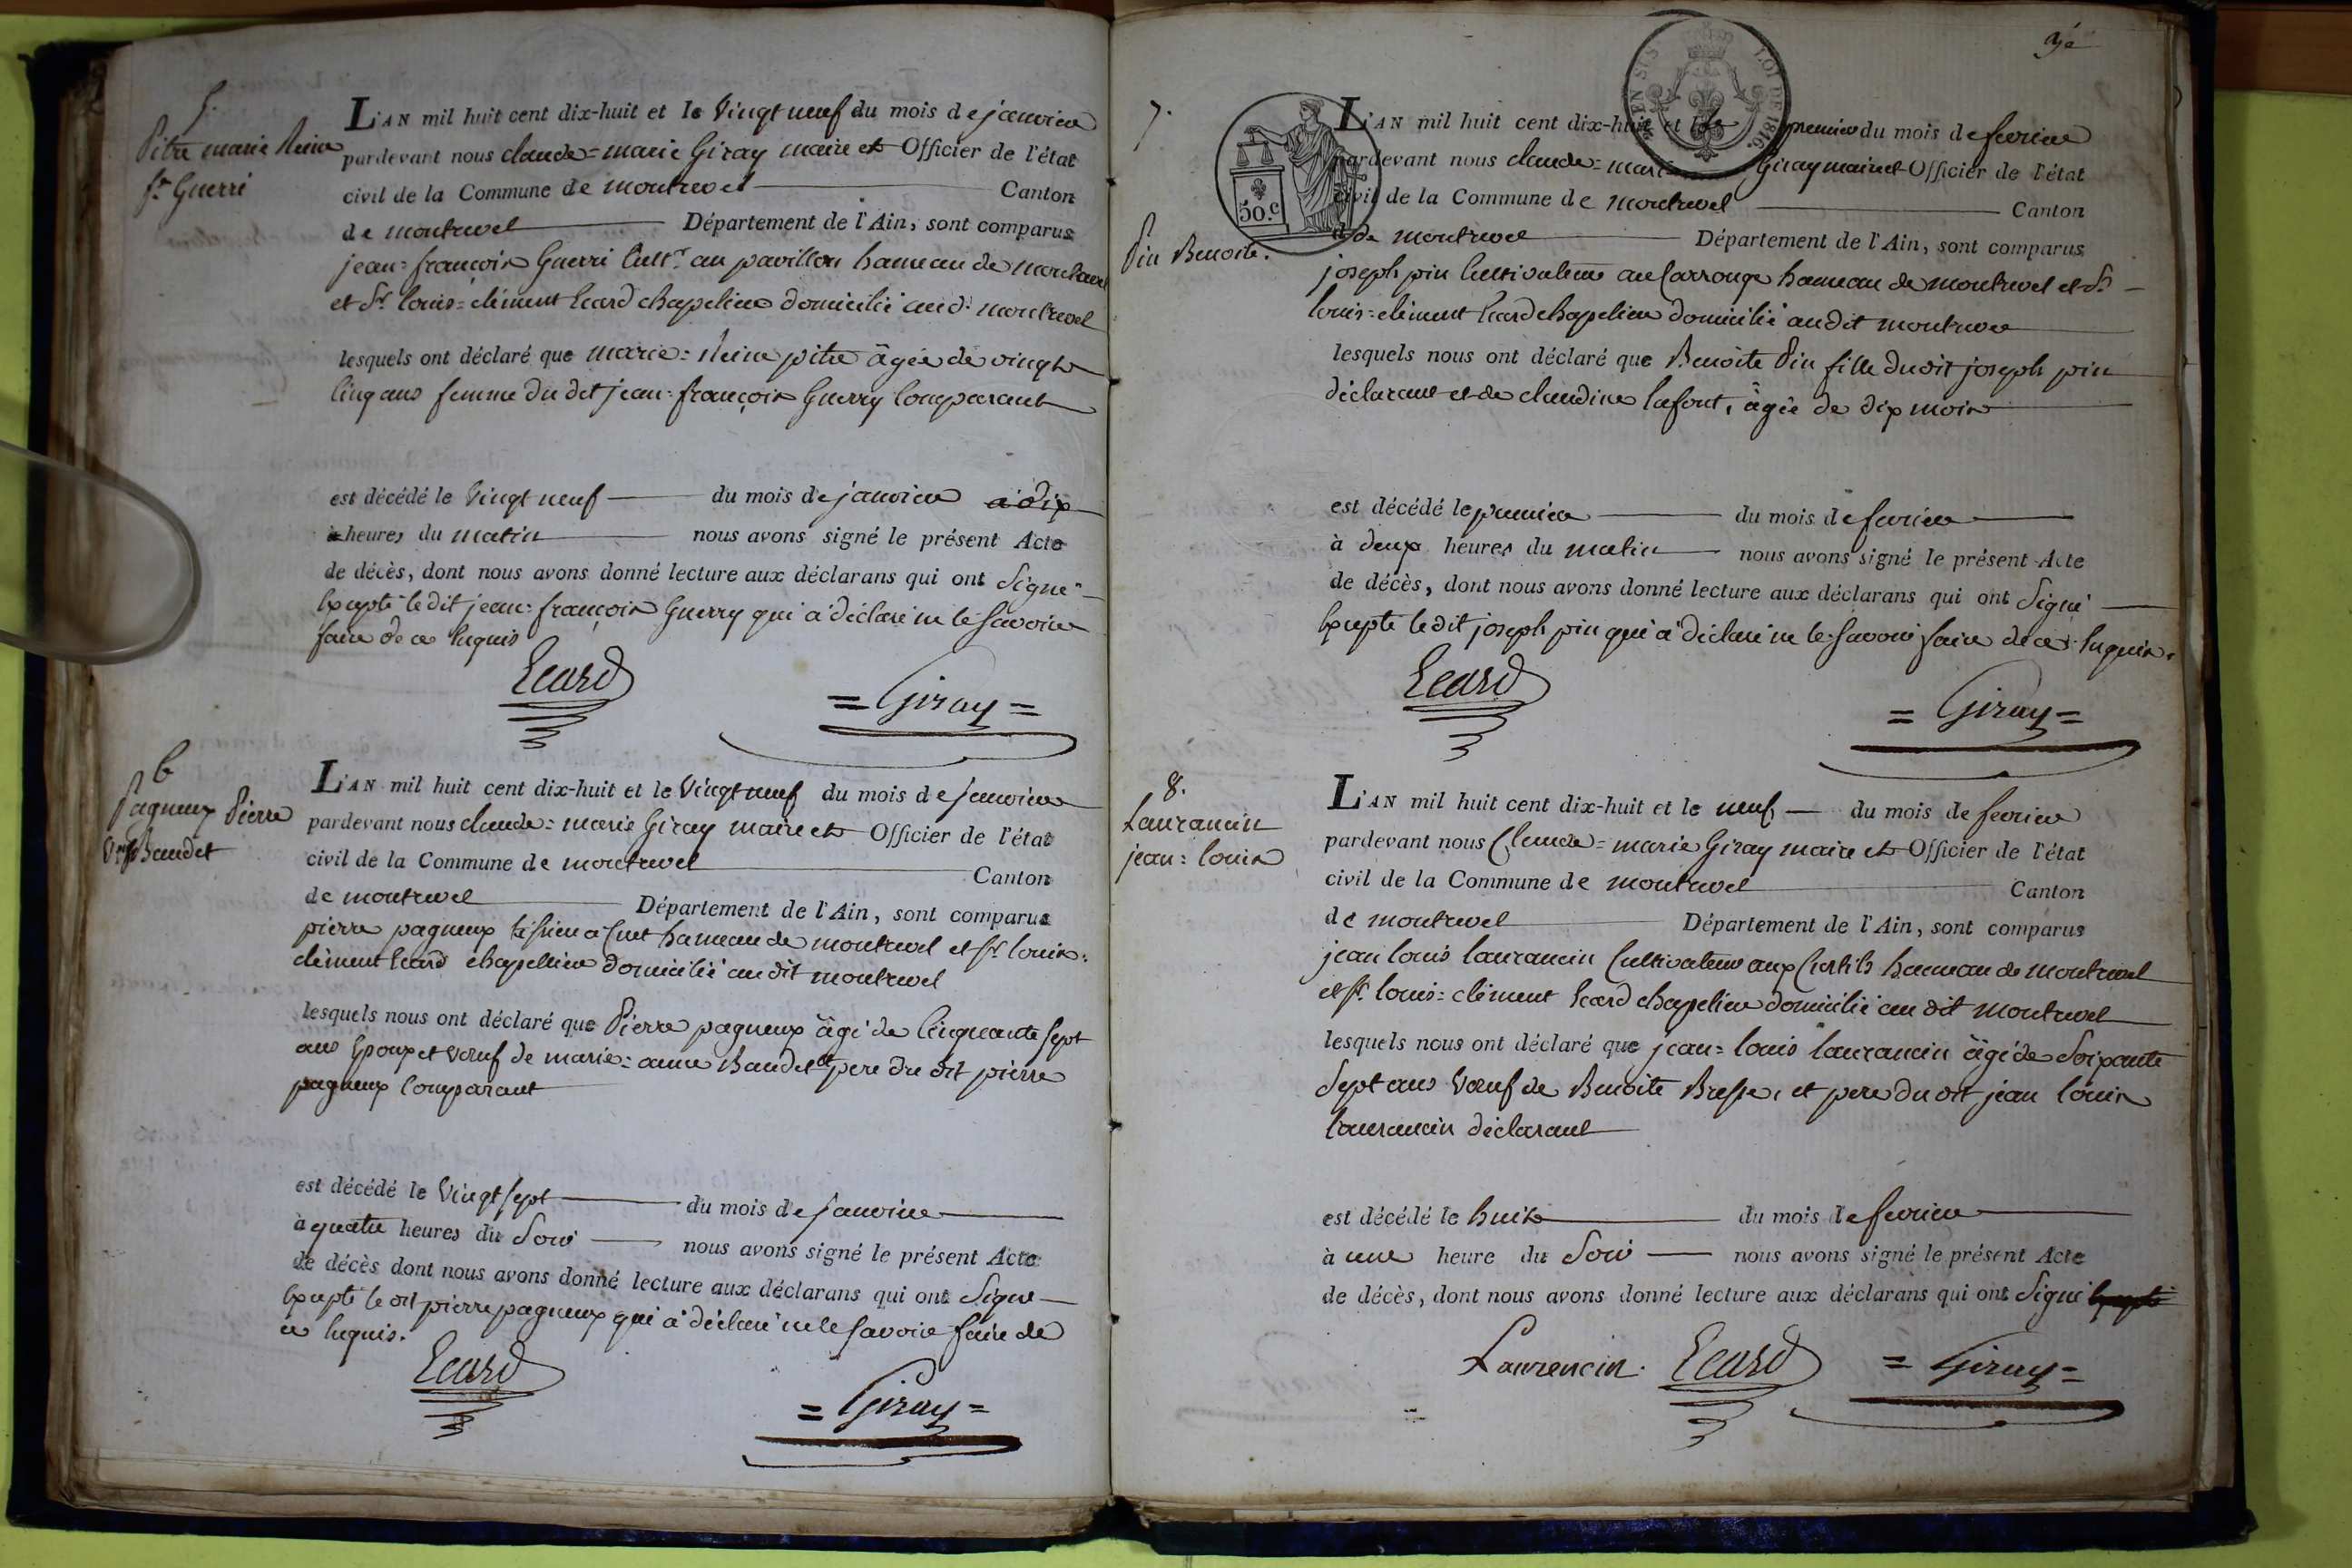 5.
Pitre marie Reine
fe Guerri
L'AN mil huit cent dix-huit et le Vingt neuf du mois de janvier
pardevant nous claude=marie Giray maire et Officier de l'état
civil de la Commune de montrevel Canton
de montrevel Département de l'Ain, sont comparus
jean=françois Guerri Cultr au pavillon hameau de
et Sr louis=clément Ecard chapelier domicilié aud. montrevel
lesquels ont déclaré que marie=Reine pitre âgée de vingt
Cinq ans femme du dit jean=françois Guerry Comparant
est décédé le Vingt neuf du mois de janvier à dix
à heures du matin nous avons signé le présent Acte
de décès, dont nous avons donné lecture aux déclarans qui ont Signé
Excepté le dit jean=françois Guerry qui a déclaré ne le Savoir
faire de ce Enquis
Ecard
=Giray=
6
Pagneux Pierre
Baudet
L'AN mil huit cent dix-huit et le Vingt neuf du mois de janvier
pardevant nous claude=marie Giray maire et Officier de l'état
civil de la Commune de montrevel Canton
de montrevel Département de l'Ain, sont comparus
pierre pagneux tissier a Cuet hameau de montrevel et Sr louis=
clément Ecard chapellier domicilié au dit montrevel
lesquels nous ont déclaré que Pierre pagneux âgé de Cinquante sept
ans Epoux et veuf de marie=anne Baudet et pere du dit pierre
pagneux Comparant
est décédé le Vingt sept du mois de janvier
à quatre heures du Soir nous avons signé le présent Acte
de décès dont nous avons donné lecture aux déclarans qui ont Signé
Excepté le dit pierre pagneux qui a déclaré ne le savoir faire de
ce Enquis.
Ecard
=Giray=
EN SUS LOI DE 1816.
50.c
7.
Pin Benoite.
L'AN mil huit cent dix-huit et le premier du mois de fevrier
pardevant nous claude=marie Giray maire et Officier de l'état
civil de la Commune de montrevel Canton
de montrevel Département de l'Ain, sont comparus
joseph pin Cultivateur au Carrouge hameau de montrevel et Sr
louis=clément Ecard chapelier domicilié audit montrevel
lesquels nous ont déclaré que Benoite Pin fille dudit joseph pin
déclarant et de claudine lafont, âgée de dix mois
est décédé le premier du mois de fevrier
à deux heures du matin nous avons signé le présent Acte
de décès, dont nous avons donné lecture aux déclarans qui ont Signé
Excepté le dit joseph pin qui a déclaré ne le Savoir faire de ce Enquis.
Ecard
=Giray=
8.
Laurancin
jean=louis
L'AN mil huit cent dix-huit et le neuf du mois de fevrier
pardevant nous Claude=marie Giray maire et Officier de l'état
civil de la Commune de montrevel Canton
de montrevel Département de l'Ain, sont comparus
jean louis laurancin Cultivateur aux Curtils hameau de montrevel
et Sr louis=clément Ecard chapelier domicilié au dit montrevel
lesquels nous ont déclaré que jean=louis laurancin âgé de Soixante
Sept ans Veuf de Benoite Bresse, et pere du dit jean louis
laurancin déclarant
est décédé le huit du mois de fevrier
à une heure du Soir nous avons signé le présent Acte
de décès, dont nous avons donné lecture aux déclarans qui ont Signé Excepté
Laurencin. Ecard =Giray=